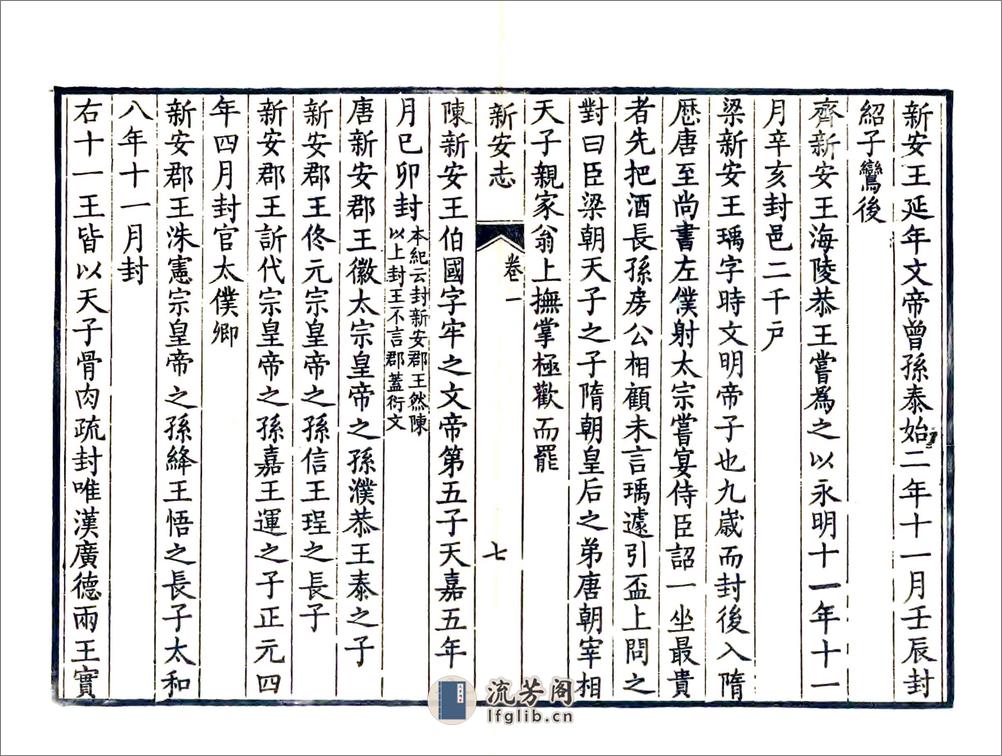 新安王延年文帝曾孫泰始二年十一月壬辰封
紹子鸞後
齊新安王海陵恭王嘗爲之以永明十一年十一
月辛亥封邑二千戸
梁新安王瑀字時文明帝子也九歲而封後入隋
歴唐至尚書左僕射太宗嘗宴侍臣詔一坐最貴
者先把酒長孫房公相顧未言瑀遽引盃上問之
對曰臣梁朝天子之子隋朝皇后之弟唐朝宰相
天子親家翁上撫掌極歡而罷
新安志 卷一 七
陳新安王伯國字牢之文帝第五子天嘉五年
月已卯封本紀云封新安郡王然陳
以上封王不言郡蓋衍文
唐新安郡王徽太宗皇帝之孫濮恭王泰之子
新安郡王佟元宗皇帝之孫信王瑝之長子
新安郡王訢代宗皇帝之孫嘉王運之子正元四
年四月封官太僕卿
新安郡王洙憲宗皇帝之孫絳王悟之長子太和
八年十一月封
右十一王皆以天子骨肉疏封唯漢廣德兩王實
流芳阁
lfglib.cn